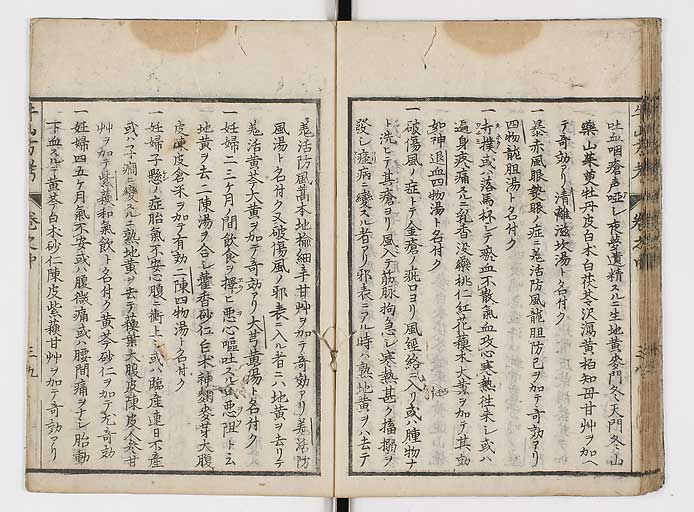 吐血咽瘡声啞シ夜發遺精スルニ生地黄麥門冬天門冬山
藥山茱萸牡丹皮白术白茯苓沢瀉黄柏知母甘艸ヲ加ヘ
テ奇効アリ清離滋坎湯ト名付ク
一暴赤風眼熱眼ノ症ニ羌活防風龍胆防已ヲ加テ奇効アリ
四物龍胆湯ト名付ク
一打撲或ハ落馬杯シテ瘀血不散氣血攻心寒熱往来シ或ハ
遍身疼痛スルニ乳香没藥桃仁紅花蘇木大黄ヲ加テ其効
如神退血四物湯ト名付ク
一破傷風ノ症トテ金瘡ノ疵口ヨリ風經絡ニ入リ或ハ腫物ナ
ト洗ヒテ其瘡ヨリ風入テ筋脉拘急シ寒熱甚ク搐搦ヲ
發シ痙病ニ變スル者アリ邪表ニアル時ハ熟地黄ヲハ去テ
羌活防風藁本地楡細辛甘艸ヲ加テ奇効アリ羌活防
風湯ト名付ク又破傷風ノ邪裏ニ入ル者ニハ地黄ヲ去リテ
羌活黄芩大黄ヲ加テ奇効アリ大芎黄湯ト名付ク
一妊婦二三ケ月ノ間飲食ヲ擇ヒ悪心嘔吐スルヲ悪阻ト云
地黄ヲ去二陳湯ヲ合シ藿香砂仁白术神麯麥芽大腹
皮陳皮倉米ヲ加テ有効二陳四物湯ト名付ク
一妊婦子懸ノ症胎氣不安心腹ニ衝上シ或ハ臨産連日不産
或ハ子癇ニ變スルニ熟地黄ヲ去テ蘓葉大腹皮陳皮人参甘
艸ヲ加テ紫蘓和氣飲ト名付ク黄芩砂仁ヲ加テ尤奇効
一妊婦四五ケ月氣不安或ハ腹微痛或ハ腰間痛ヲナシ胎動
下血スルニ黄芩白术砂仁陳皮紫蘓甘艸ヲ加テ奇効アリ
卷之中
三九